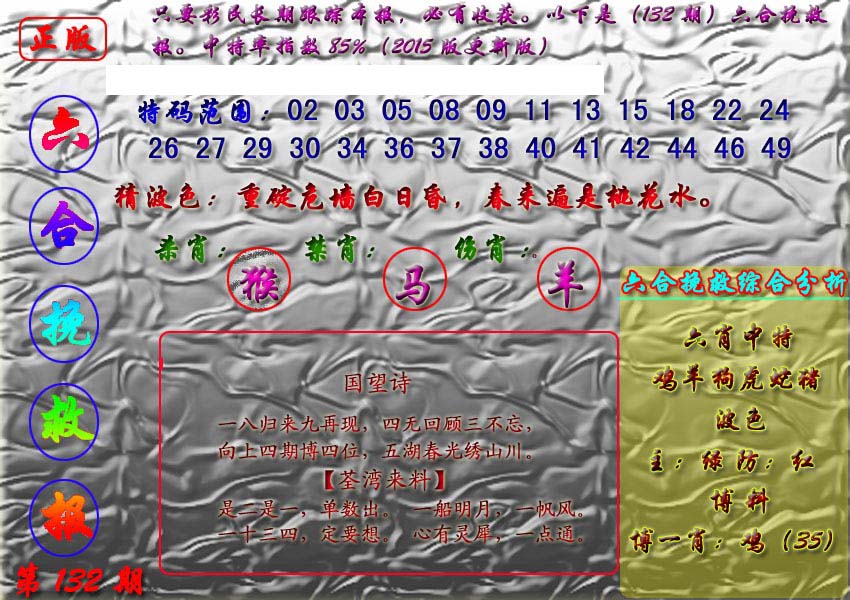 正版
只要彩民长期跟踪本报，必有收获。以下是（132期）六合挽救
报。中特率指数85%（2015版更新版）
六合挽救报
第132期
特码范围：02 03 05 08 09 11 13 15 18 22 24
26 27 29 30 34 36 37 38 40 41 42 44 46 49
猜波色：重碇危墙白日昏，春来遍是桃花水。
杀肖：猴 禁肖：马 伤肖：羊
国望诗
一八归来九再现，四无回顾三不忘，
向上四期博四位，五湖春光绣山川。
【荃湾来料】
是二是一，单数出。 一船明月，一帆风。
一十三四，定要想。 心有灵犀，一点通。
六合挽救综合分析
六肖中特
鸡羊狗虎蛇猪
波色
主：绿防：红
博料
博一肖：鸡（35）